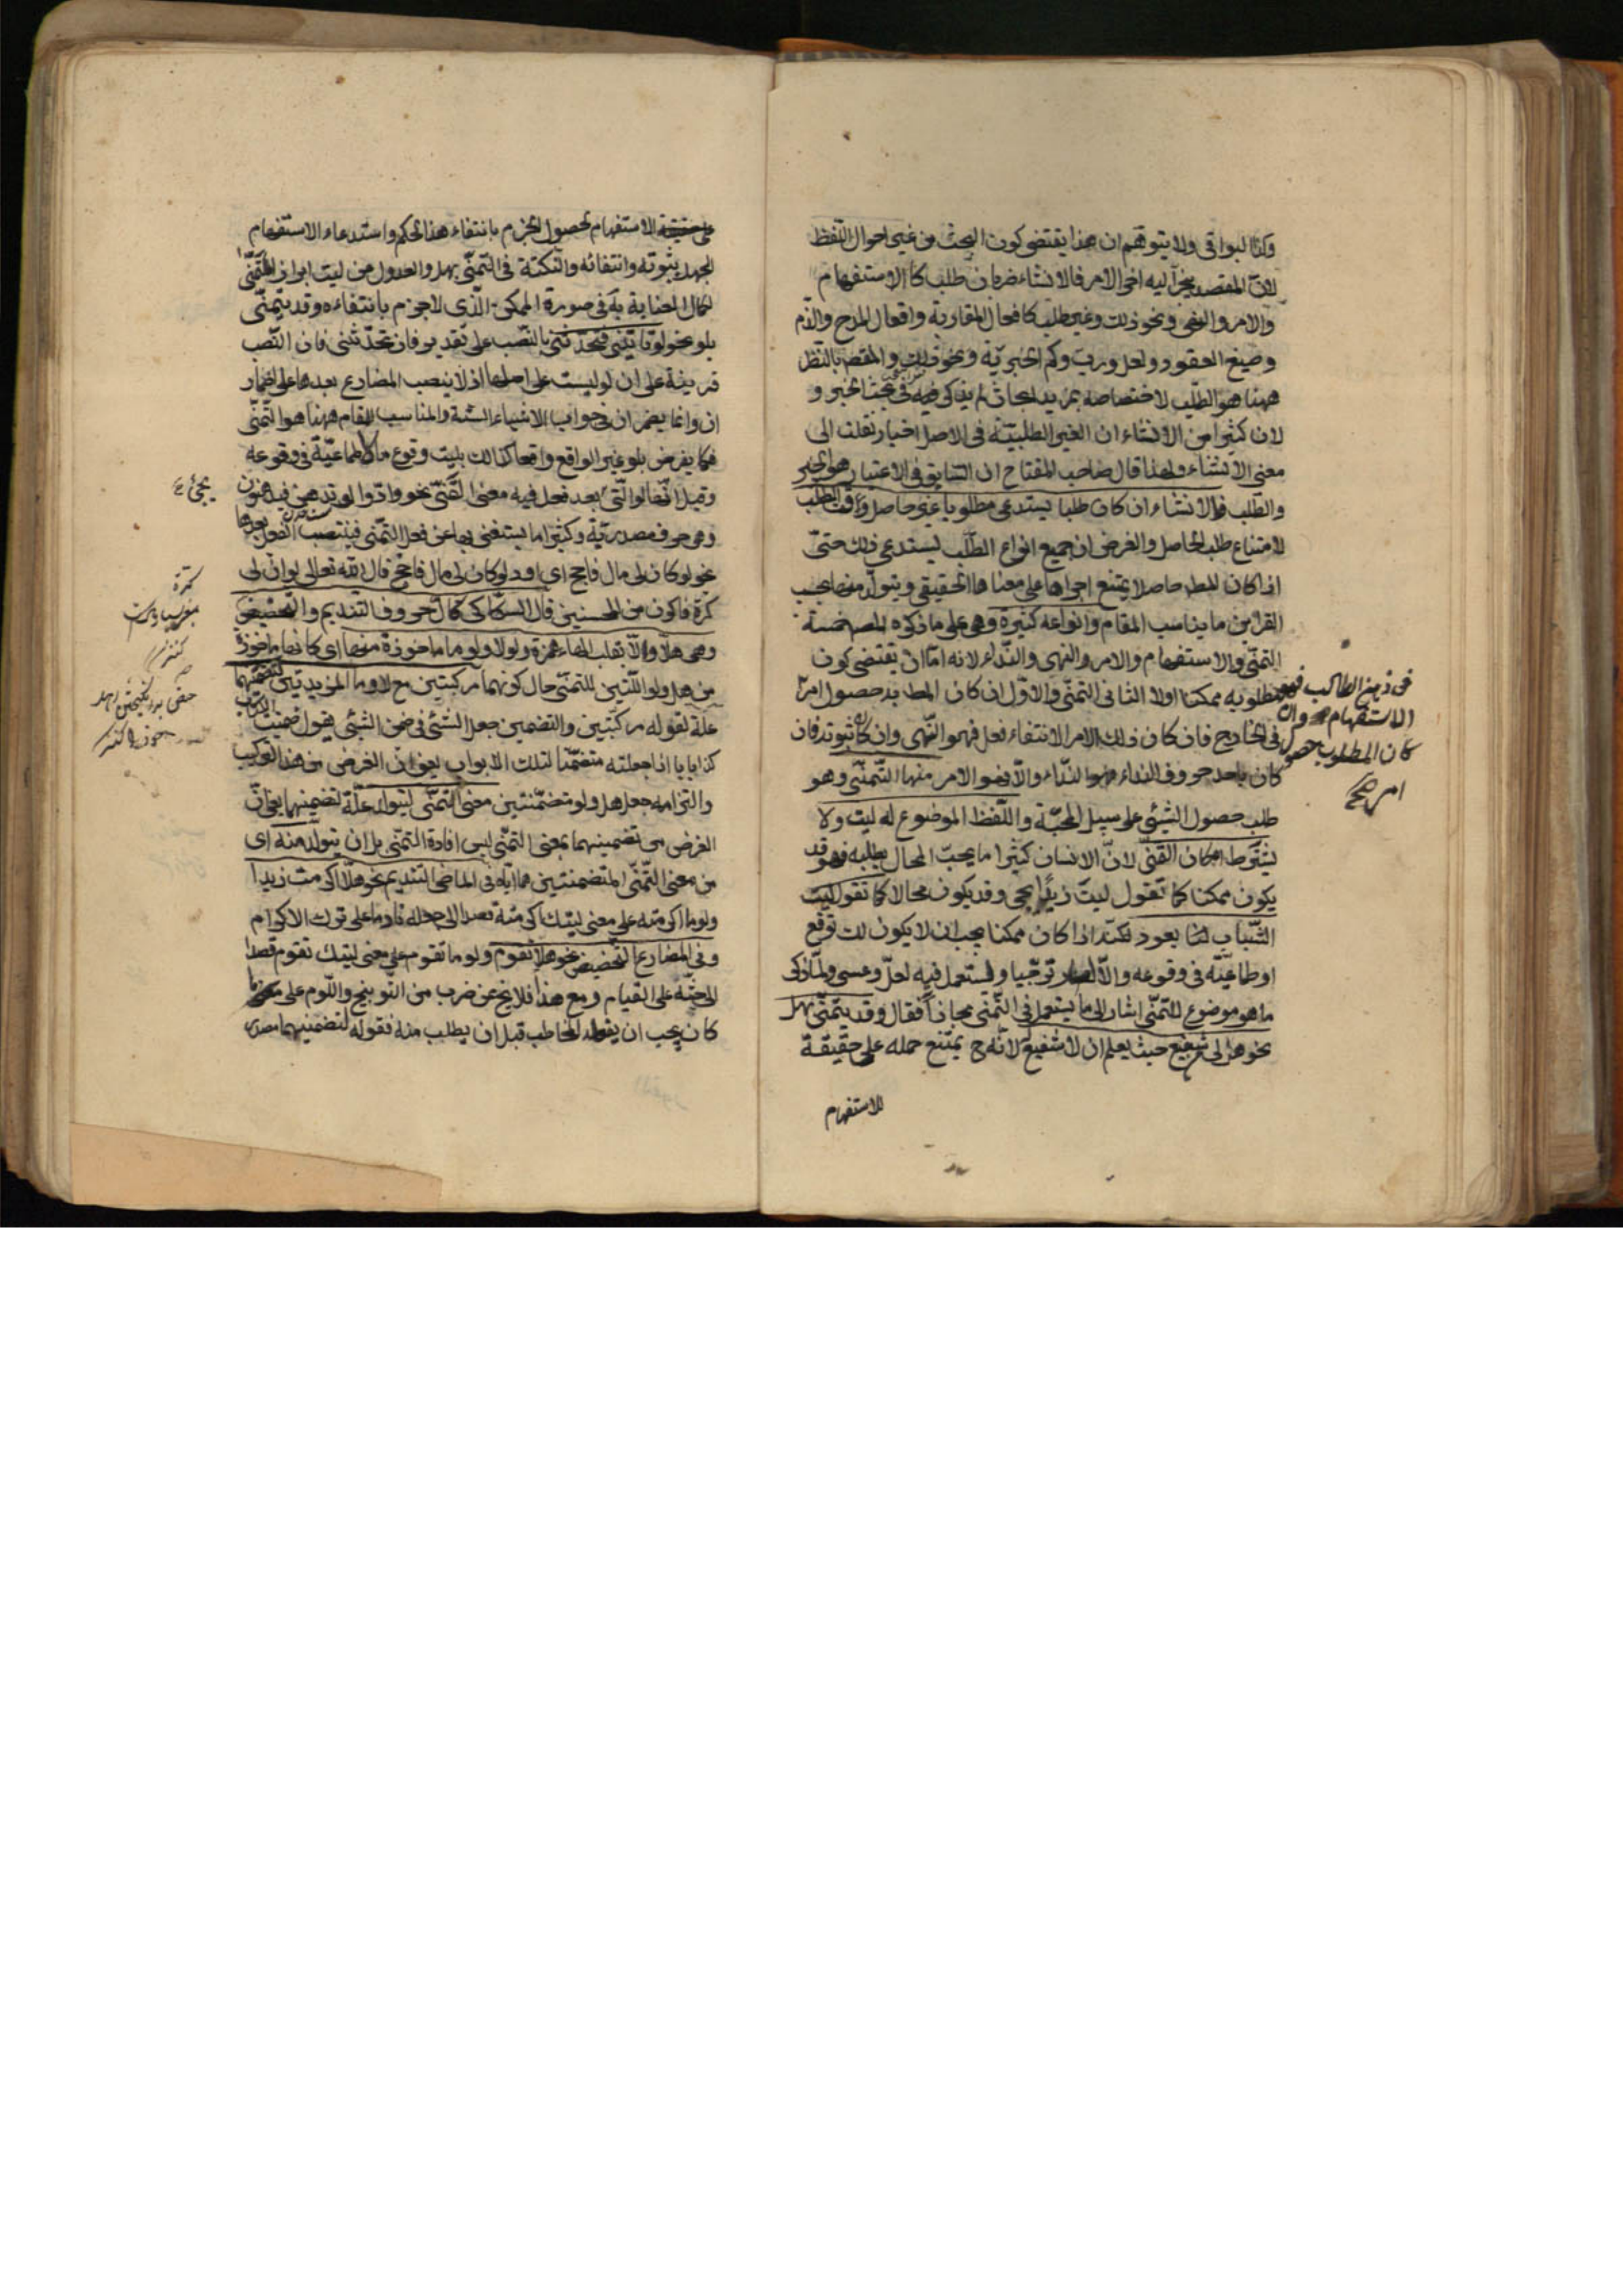 وكذا البواقى ولا يتوهم ان هذا يقتضى كون البحث من غير احوال اللفظ
لان المقصد ينجر اليه اخر الامر فالانشاء ضربان طلب كالاستفهام
والامر والنهى ونحو ذلك وغير طلب كافعال المقاربة وافعال المدح والذم
وصيغ العقود ولعل ورب وكم الخبرية ونحو ذلك والمقصد بالنظر
ههنا هو الطلب لاختصاصه بمزيد ابحاث لم يذكر فى بحث الخبر و
لان كثيرا من الانشاء ان الغير الطلبية فى الاصل اخبار نقلت الى
معنى الانشاء ولهذا قال صاحب المفتاح ان السابق فى الاعتبار هو الخبر
والطلب فالانشاء ان كان طلبا يستدعى مطلوبا غير حاصل وقت الطلب
لامتناع طلب الحاصل والغرض ان جميع انواع الطلب يستدعى ذلك حتى
اذا كان المط حاصلا يمتنع اجراءها على معناها الحقيقى ويتولد منها بحسب
القراين ما يناسب المقام وانواعه كثيرة وهى على ما ذكره المص خمسة
التمنى والاستفهام والامر والنهى والنداء لانه اما ان يقتضى كون
مطلوبه ممكنا اولا الثانى التمنى والاول ان كان المط به حصول امر
فى ذهن الطالب فهو
الاستفهام وان
كان المطلوب حصول
امر صح
فى الخارج فان كان ذلك الامر الانتفاء فعل فهو النهى وان كان ثبوته فان
كان باحد حروف النداء فهو النداء والا فهو الامر منها التمنى وهو
طلب حصول الشيئى على سبيل المحبة واللفظ الموضوع له ليت ولا
يشترط امكان المتمنى لان الانسان كثيرا ما يحب المحال يطلبه فهو قد
يكون ممكنا كما تقول ليت زيدا يجى وقد يكون محالا كما تقول ليت
الشباب لنا يعود لكنه اذا كان ممكنا يجب ان لا يكون لك توقع
او طماعية فى وقوعه والا لصار ترجيا ويستعمل فيه لعل وعسى ولما ذكر
ما هو موضوع للتمنى اشار الى ما يستعمل فى التمنى مجازا فقال وقد يتمنى بهل
نحو هل لى شفيع حيث يعلم ان لا شفيع لانه ح يمتنع حمله على حقيقة
الاستفهام
على حقيقة الاستفهام لحصول الجزم بانتفاء هذا الحكم واستدعاء الاستفهام
الجهل بثبوته وانتفائه والنكتة فى التمنى بهل والعدول من ليت ابراز المتمنى
لكمال العناية به فى صورة الممكن الذى لا جزم بانتفاءه وقد يتمنى
بلو نحو لو تاتينى فتحدثنى بالنصب على تقدير فان تحدثنى فان النصب
قرينة على ان لو ليست على اصلها اذ لا ينصب المضارع بعدها على اضمار
ان وانما يضمر ان فى جواب الاشياء الستة والمناسب للمقام ههنا هو التمنى
فكما يفرض بلو غير الواقع واقعا كذلك بليت وقوع ما لا طماعية فى وقوعه
وقيل انها لو التى بعد فعل فيه معنى التمنى نحو ودوا لو تدهن فيدهنون
يجئ ع
وهى حرف مصدرية وكثيرا ما يستغنى بها عن فعل التمنى فينتصب الفعل بعدها
نحو لو كان لى مال فاحج اى اود لو كان لى مال فاحج قال الله تعالى لو ان لى
كرة
كرة فاكون من المحسنين قال السكاكى كان حروف التنديم والتحضيض
وهى هلا والا بقلب الهاء همزة ولولا ولوما ماخوذة منها اى كانها ماخوذة
من هل ولو اللتين للتمنى حال كونهما مركبتين مع لا وما المزيدتين لتضمينهما
علة لقوله مركبتين والتضمين جعل الشئ فى ضمن الشيئى يقول ضمنت الكتاب
كذا بابا اذا جعلته متضمنا لتلك الابواب يعنى ان الغرض من هذا التركيب
والتزامه جعل هل ولو متضمنتين معنى التمنى ليتولد علة لتضمينهما يعنى ان
الغرض من تضمينهما بمعنى التمنى ليس افادة التمنى بل ان يتولد منه اى
من معنى التمنى المتضمنتين هما اياه فى الماضى التنديم نحو هلا اكرمت زيدا
ولوما اكرمته على معنى ليتك اكرمته قصدا الى جعله نادما على ترك الاكرام
وفى المضارع التحضيض نحو هلا تقوم ولوما تقوم على معنى ليتك تقوم قصدا
الى حثه على القيام ومع هذا فلا يخ عن ضرب من التوبيخ واللوم على ما
كان يجب ان يفعله المخاطب قبل ان يطلب منه فقوله لتضمينهما مصدر